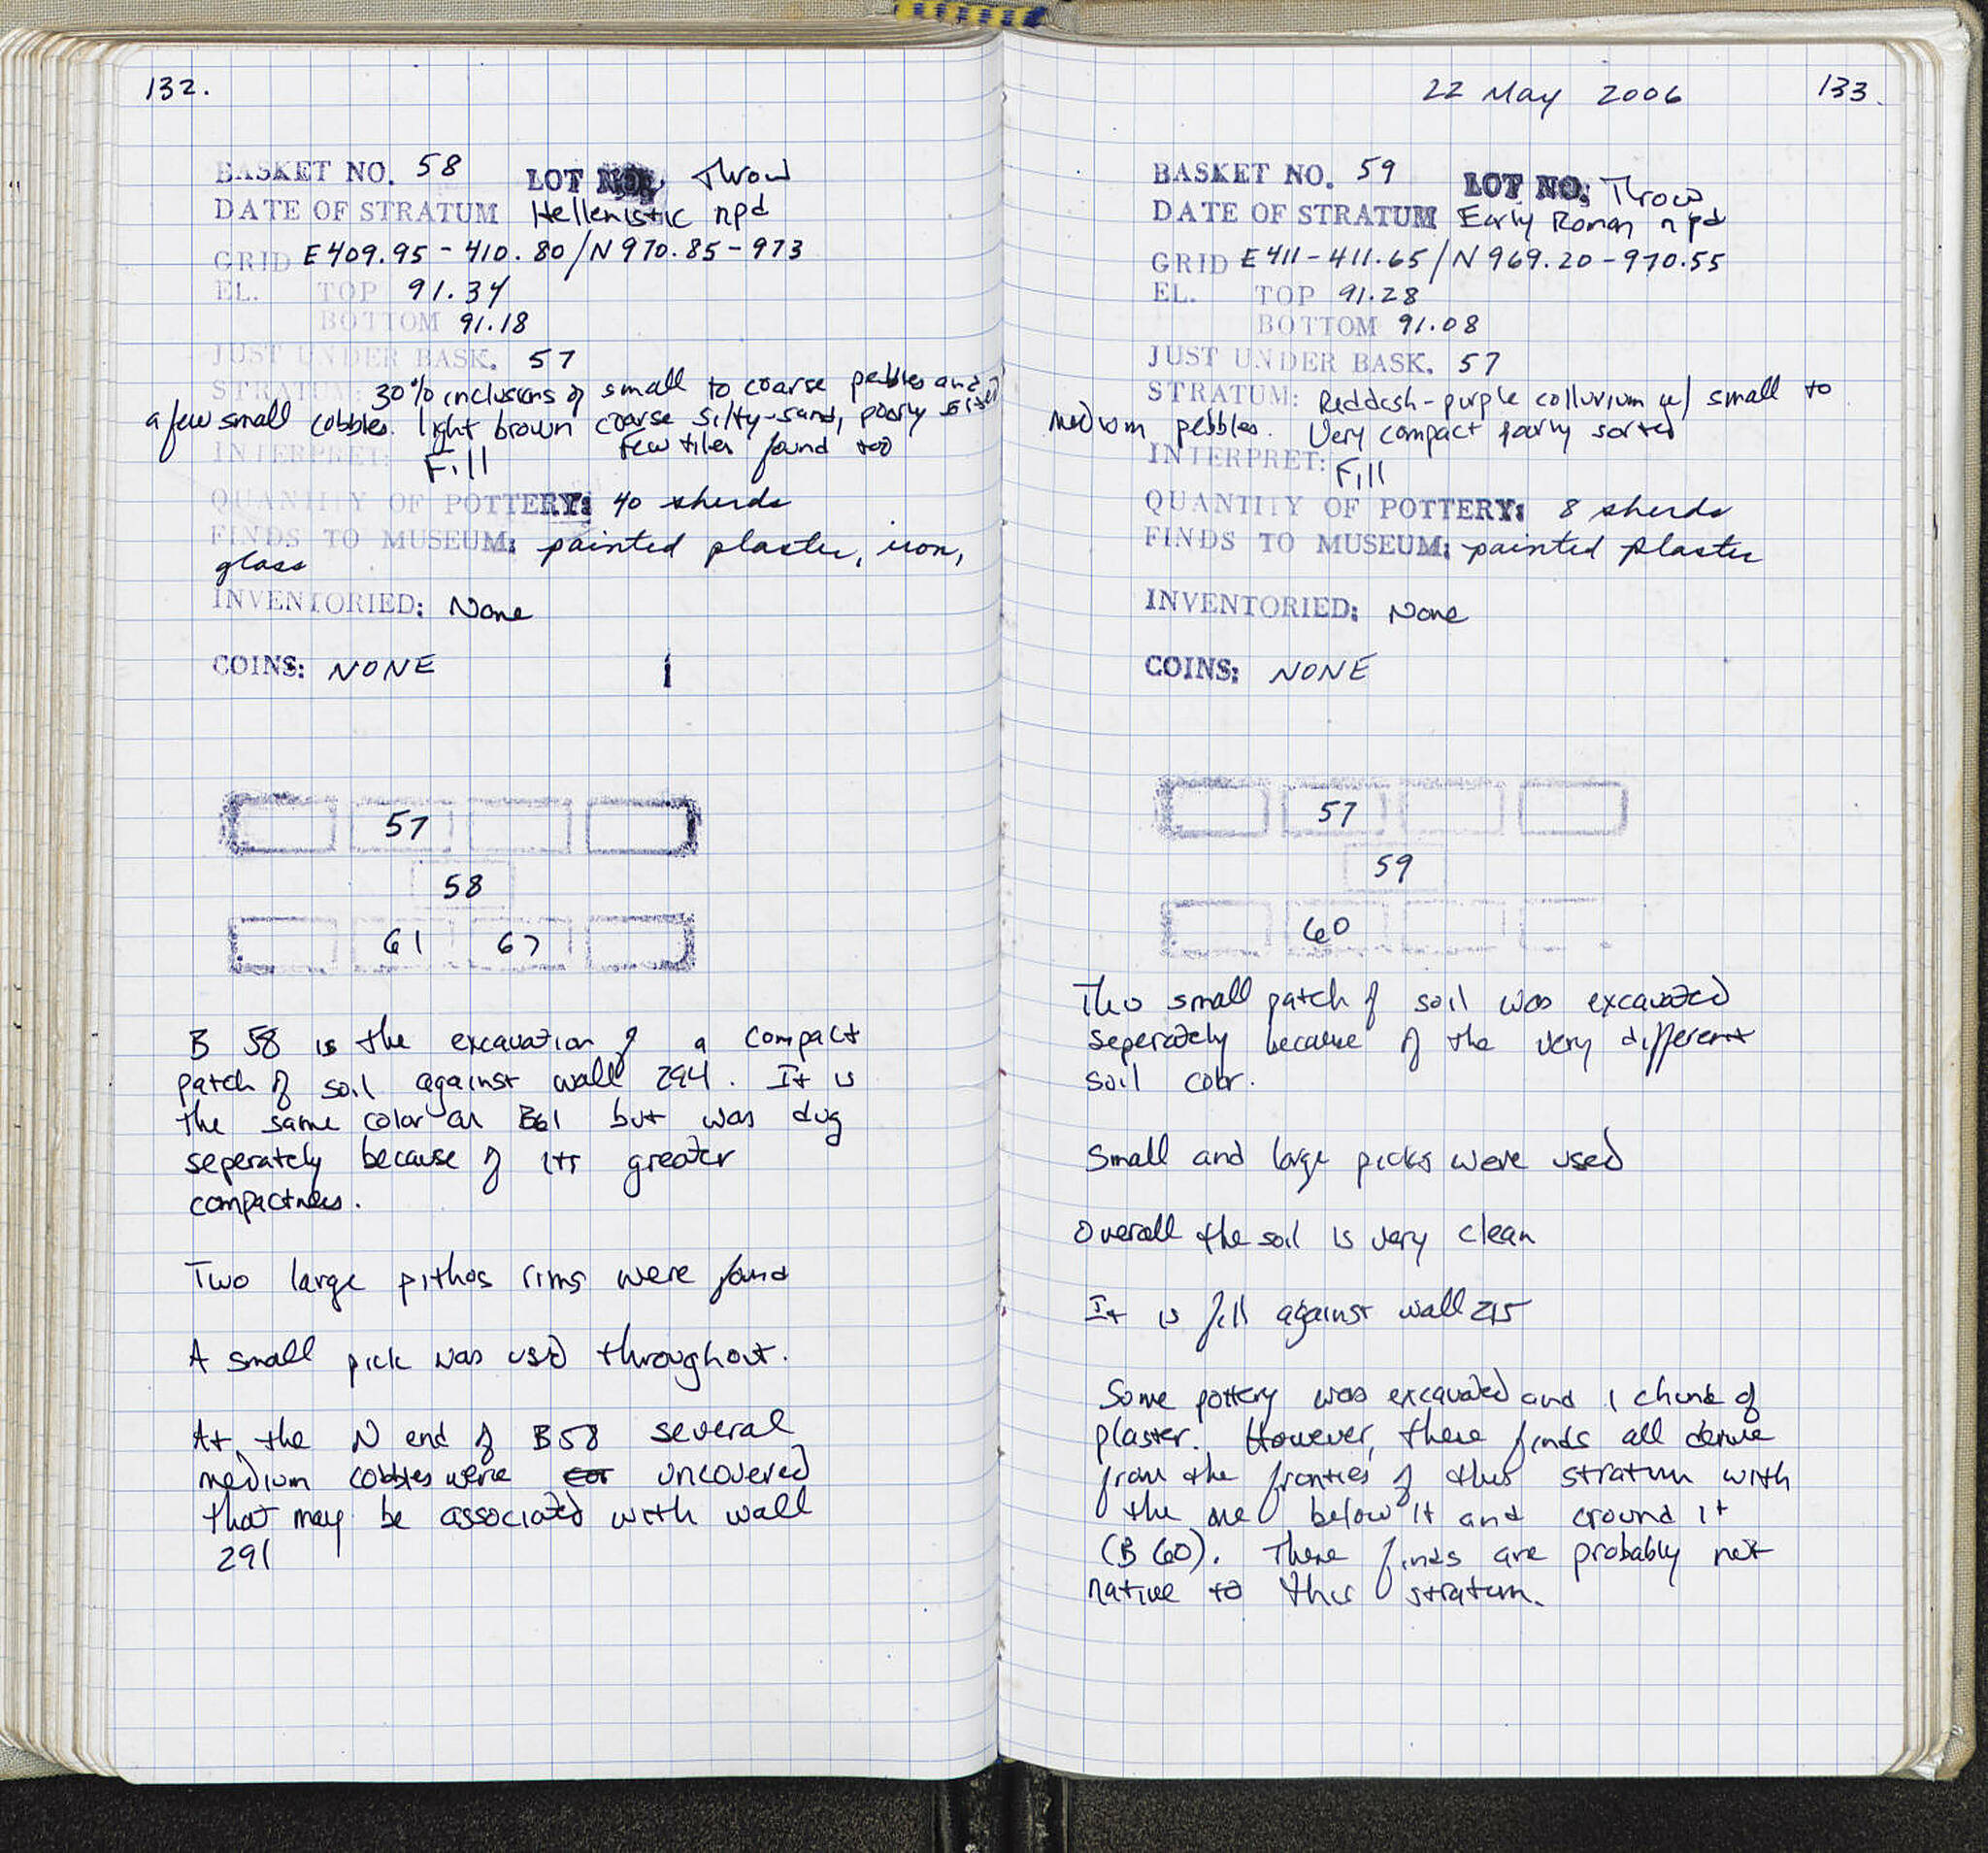 132.
BASKET NO. 58 LOT NO. Throw
DATE OF STRATUM Hellenistic npd
GRID E409.95-410.80/N970.85-973
EL. TOP 91.34
BOTTOM 91.18
JUST UNDER BASK. 57
STRATUM: 30% inclusions of small to coarse pebbles and
a few small cobbles. light brown coarse silty-sand, poorly sorted
few tiles found too
INTERPRET: Fill
QUANTITY OF POTTERY: 40 sherds
FINDS TO MUSEUM: painted plaster, iron,
glass
INVENTORIED: None
COINS: NONE
57
58
61 67
B 58 is the excavation of a compact
patch of soil against wall 294. It is
the same color as B61 but was dug
seperately because of its greater
compactness.
Two large pithos rims were found
A small pick was used throughout.
At the N end of B58 several
medium cobbles were uncovered
that may be associated with wall
291
22 May 2006 133.
BASKET NO. 59 LOT NO. Throw
DATE OF STRATUM Early Roman npd
GRID E411-411.65/N969.20-970.55
EL. TOP 91.28
BOTTOM 91.08
JUST UNDER BASK. 57
STRATUM: Reddish-purple colluvium w/ small to
medium pebbles. Very compact sorted
INTERPRET: Fill
QUANTITY OF POTTERY: 8 sherds
FINDS TO MUSEUM: painted plaster
INVENTORIED: None
COINS: NONE
57
59
60
This small patch of soil was excavated
seperately because of the very different
soil color.
Small and large picks were used
Overall the soil is very clean
It is fill against wall
Some pottery was excavated and 1 chunk of
plaster. However, these finds all derive
from the fronties of this stratum with
the one below it and around it
(B 60). These finds are probably not
native to this stratum.